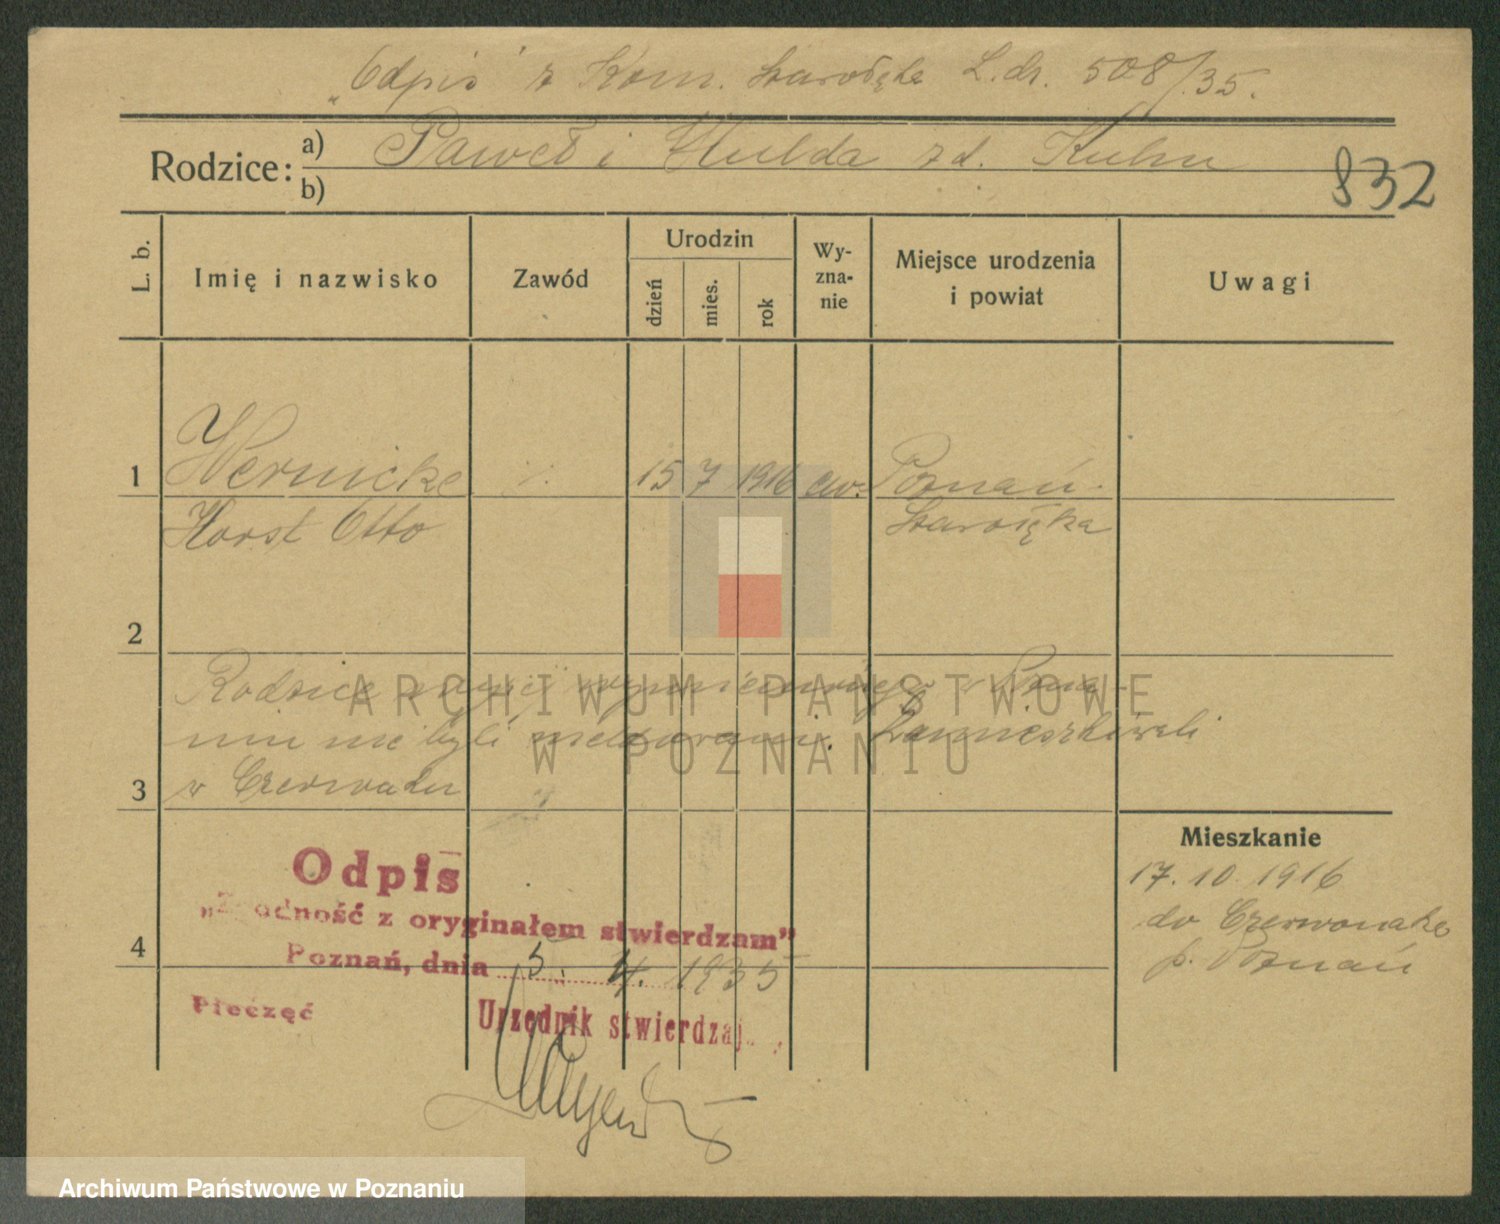 „Odpis" z Kom. Starołęka L.dz. 508/35.
Rodzice: a) Paweł i Hulda zd. Kuhn
b)
832
L. b.
Imię i nazwisko
Zawód
Urodzin
dzień
mies.
rok
Wy-
zna-
nie
Miejsce urodzenia
i powiat
Uwagi
1 Wernicke ./. 15 7 1916 ew. Poznań.
Horst Otto Starołęka
2
Rodzice wyżej w Pozna-
niu nie byli meldowani. Zamieszkiwali
3 w
ARCHIWUM PAŃSTWOWE
W POZNANIU
Mieszkanie
17.10.1916
do Czerwonaka
p. Poznań
Odpis
„Zgodność z oryginałem stwierdzam"
4
Poznań, dnia 5. 4. 1935
Pieczęć
Urzędnik stwierdzaj.
Archiwum Państwowe w Poznaniu